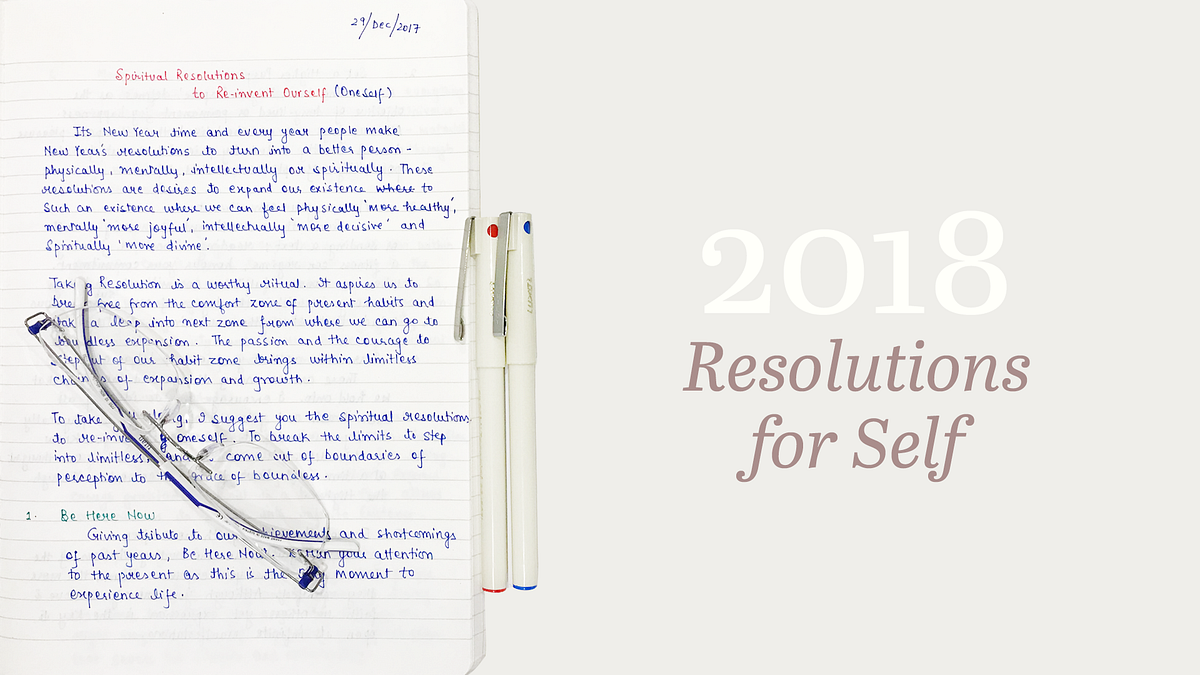 29/Dec/2017
Spiritual Resolutions
to Re-invent Ourself (Oneself)
Its New Year time and every year people make
New Year's resolutions to turn into a better person -
physically, mentally, intellectually or spiritually. These
resolutions are desires to expand our existence where to
Such an existence where we can feel physically 'more healthy',
mentally 'more joyful', intellectually 'more decisive' and
Spiritually 'more divine'.
Taking Resolution is a worthy ritual. It aspires us to
free from the comfort zone of present habits and
a leap into next zone from where we can go to
expansion. The passion and the courage to
out of our habit zone brings within limitless
of expansion and growth.
To take I suggest you the spiritual resolutions
to oneself. To break the limits to step
into limitless, and come out of boundaries of
perception to the grace of boundless.
1. Be Here Now
Giving tribute to our achievements and shortcomings
of past years, 'Be Here Now'. your attention
to the present as this is the moment to
experience life.
2018
Resolutions
for Self